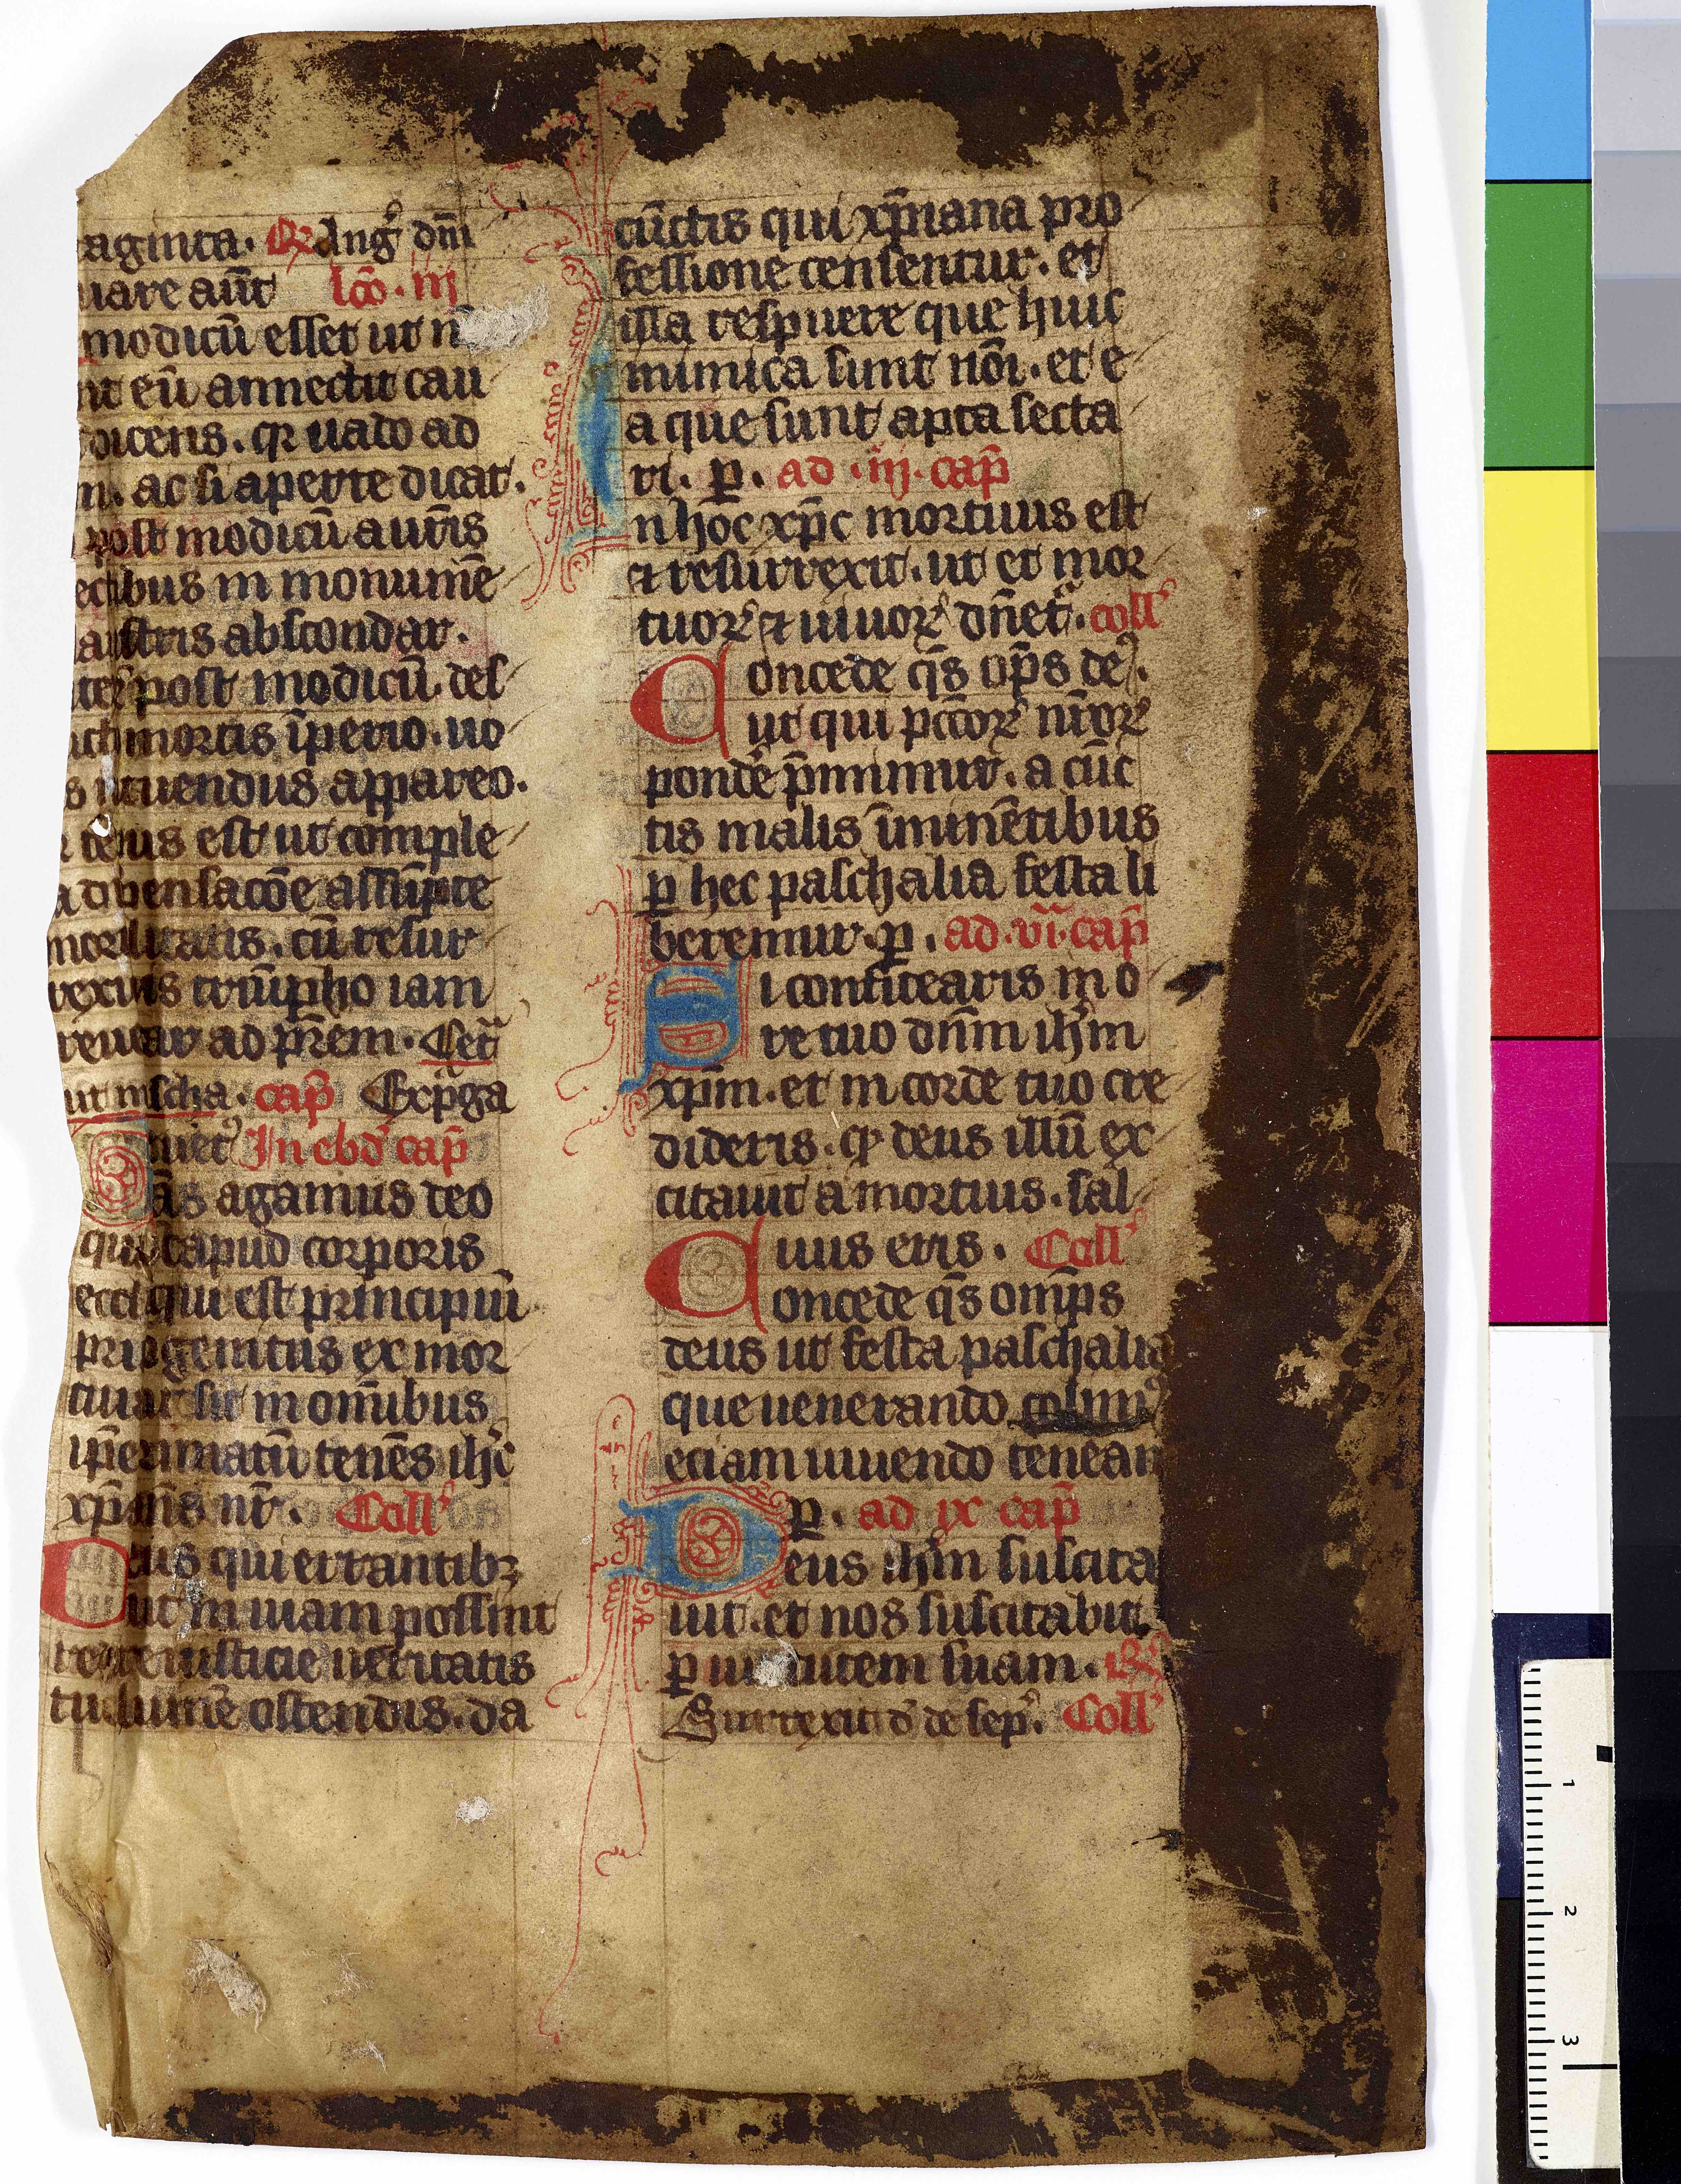 aginta. R Angꝰ dn̄i
uare aūt lc̄o .iij
modicū esset ut n
nt eū annectit cau
dicens. qr uado ad
m. ac si aperte dicat.
post modicū a ur̄is
ectibus in monumē
austris abscondar.
iteꝝ post modicū des
mortis īperio. uo
s ītuendus appareo.
est ut comple
dispensacōe assūpte
mortalitatis. cū resur
rexiōis triūpho iam
reuear ad pr̄em. Cet̄a
ut insc̄ha. cap̄ Exp̄ga
te uet⁹ In ebd̄ cap̄
as agamus deo
qui capud corporis
eccl̄ qui est principiū
pri⁹genitus ex mor
tuis ut sit in om̄ibus
ip̄e p̄rimatū tenēs ih̄c
xp̄c dn̄s nr̄. Coll̄
Deus qui errantibꝫ
ut in uiam possint
redire iusticie ueritatis
tue lumē ostendis. da
cūctis qui xp̄riana pro
fessione censentur. et
illa respuere que huic
inimica sunt nōi. et e
a que sunt apta secta
ri. ꝑ. ad .iij. cap̄
In hoc xp̄c mortuus est
⁊ resurrexit. ut et mor
tuoꝝ ⁊ uiuoꝝ dn̄et᷑. coll̄
Concede q̄s op̄s de⁹.
ut qui pcc̄oꝝ nr̄oꝝ
pondē p̄mimur. a cūc
tis malis īminētibus
ꝑ hec paschalia festa li
beremur. ꝑ. ad .vi. cap̄
Si confitearis in o
re tuo dn̄m ih̄m
xp̄m. et in corde tuo cre
dideris. qꝫ deus illū ex
citauit a mortuis. sal
uus eris. Coll̄
Concede q̄s om̄ps
deus ut festa paschalia
que uenerando colim⁹
eciam uiuendo tenean
ꝑ. ad ix cap̄
Deus ih̄m suscita
uit. et nos suscitabit
ꝑ uirtutem suam. R
Surrexit d̄ de sep̄. Coll̄